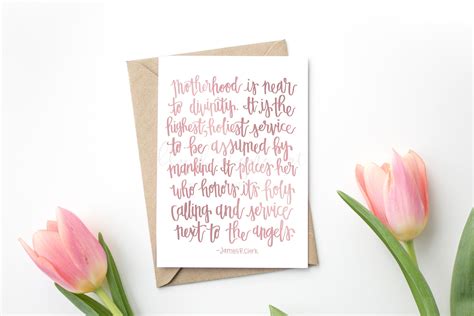 motherhood is near
to divinity. It is the
highest, holiest service
to be assumed by
mankind. It places her
who honors its holy
calling and service
next to the angels.